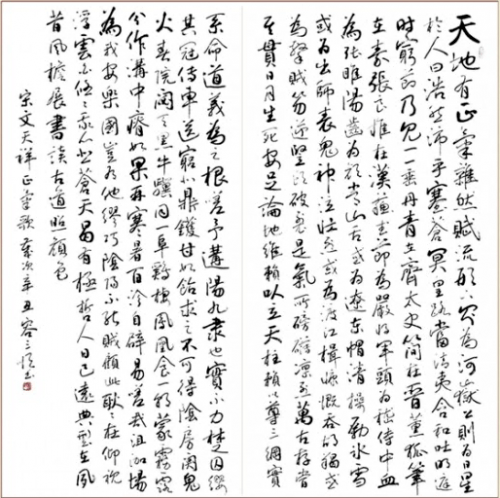 天地有正氣雜然賦流形下則為河嶽上則為日星
於人曰浩然沛乎塞蒼冥皇路當清夷含和吐明庭
時窮節乃見一一垂丹青在齊太史簡在晉董狐筆
在秦張良椎在漢蘇武節為嚴將軍頭為嵇侍中血
為張睢陽齒為顏常山舌或為遼東帽清操厲冰雪
或為出師表鬼神泣壯烈或為渡江楫慷慨吞胡羯或
為擊賊笏逆豎頭破裂是氣所磅礴凜烈萬古存當
其貫日月生死安足論地維賴以立天柱賴以尊三綱實
系命道義為之根嗟予遘陽九隸也實不力楚囚纓
其冠傳車送窮北鼎鑊甘如飴求之不可得陰房闃鬼
火春院閟天黑牛驥同一皁雞棲鳳凰食一朝蒙霧露
分作溝中瘠如再寒暑百沴自辟易哉沮洳場
為我安樂國豈有他繆巧陰陽不能賊顧此耿在仰視
浮雲白悠悠我心悲蒼天曷有極哲人日已遠典型在夙
昔風檐展書讀古道照顏色
宋文天祥正氣歌歲次辛丑容之書